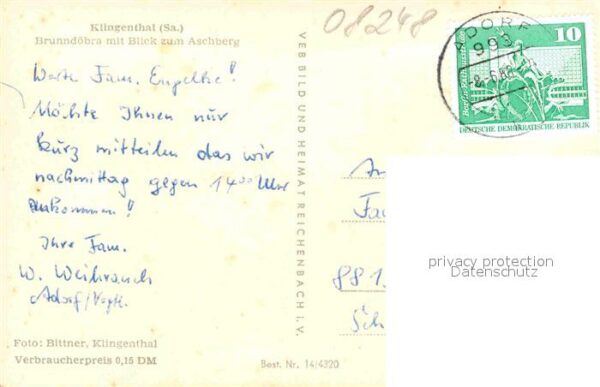 Klingenthal (Sa.)
Brunndöbra mit Blick zum Aschberg
08248
Werte Fam.
Möchte Ihnen nur
kurz mitteilen das wir
nachmittag gegen 14 00 Uhr
ankommen!
Ihre Fam.
W. Weihrauch
Adorf/Vogtl.
Foto: Bittner, Klingenthal
Verbraucherpreis 0,15 DM
VEB BILD UND HEIMAT REICHENBACH i. V.
Best. Nr. 14/4320
ADORF
993
10
DEUTSCHE DEMOKRATISCHE REPUBLIK
An
Fa
88 1
Sch
privacy protection
Datenschutz